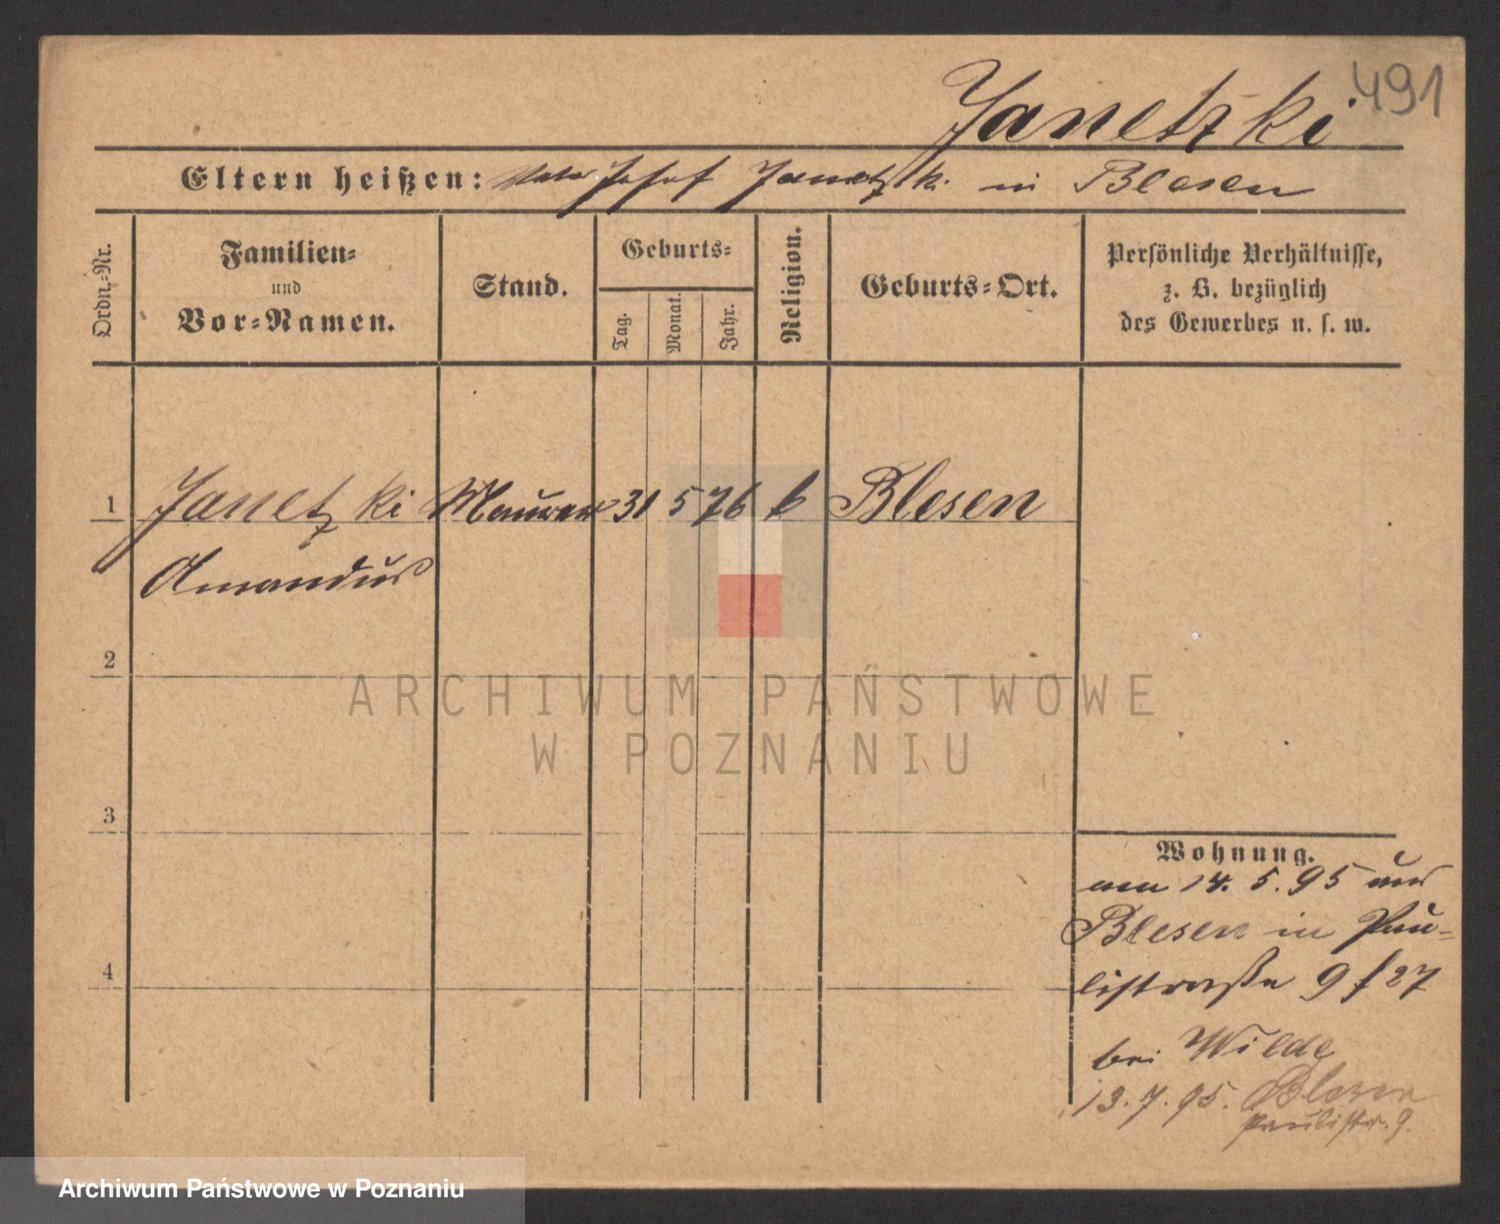 491
Janetzki
Eltern heißen: Vater Josef Janetzki in Blesen
Ordn.-Nr.
Familien-
und
Vor-Namen.
Stand.
Geburts-
Tag.
Monat.
Jahr.
Religion.
Geburts-Ort.
Persönliche Verhältnisse,
z. B. bezüglich
des Gewerbes u. s. w.
1 Janetzki Maurer 31 5 76 k Blesen
Amandus
2
3
4
Wohnung.
am 14. 5. 95 aus
Blesen in Pau-
listraße 9 f 27
bei Wilde
13. 7. 95. Blesen
Paulistr. 9.
ARCHIWUM PAŃSTWOWE
W POZNANIU
Archiwum Państwowe w Poznaniu